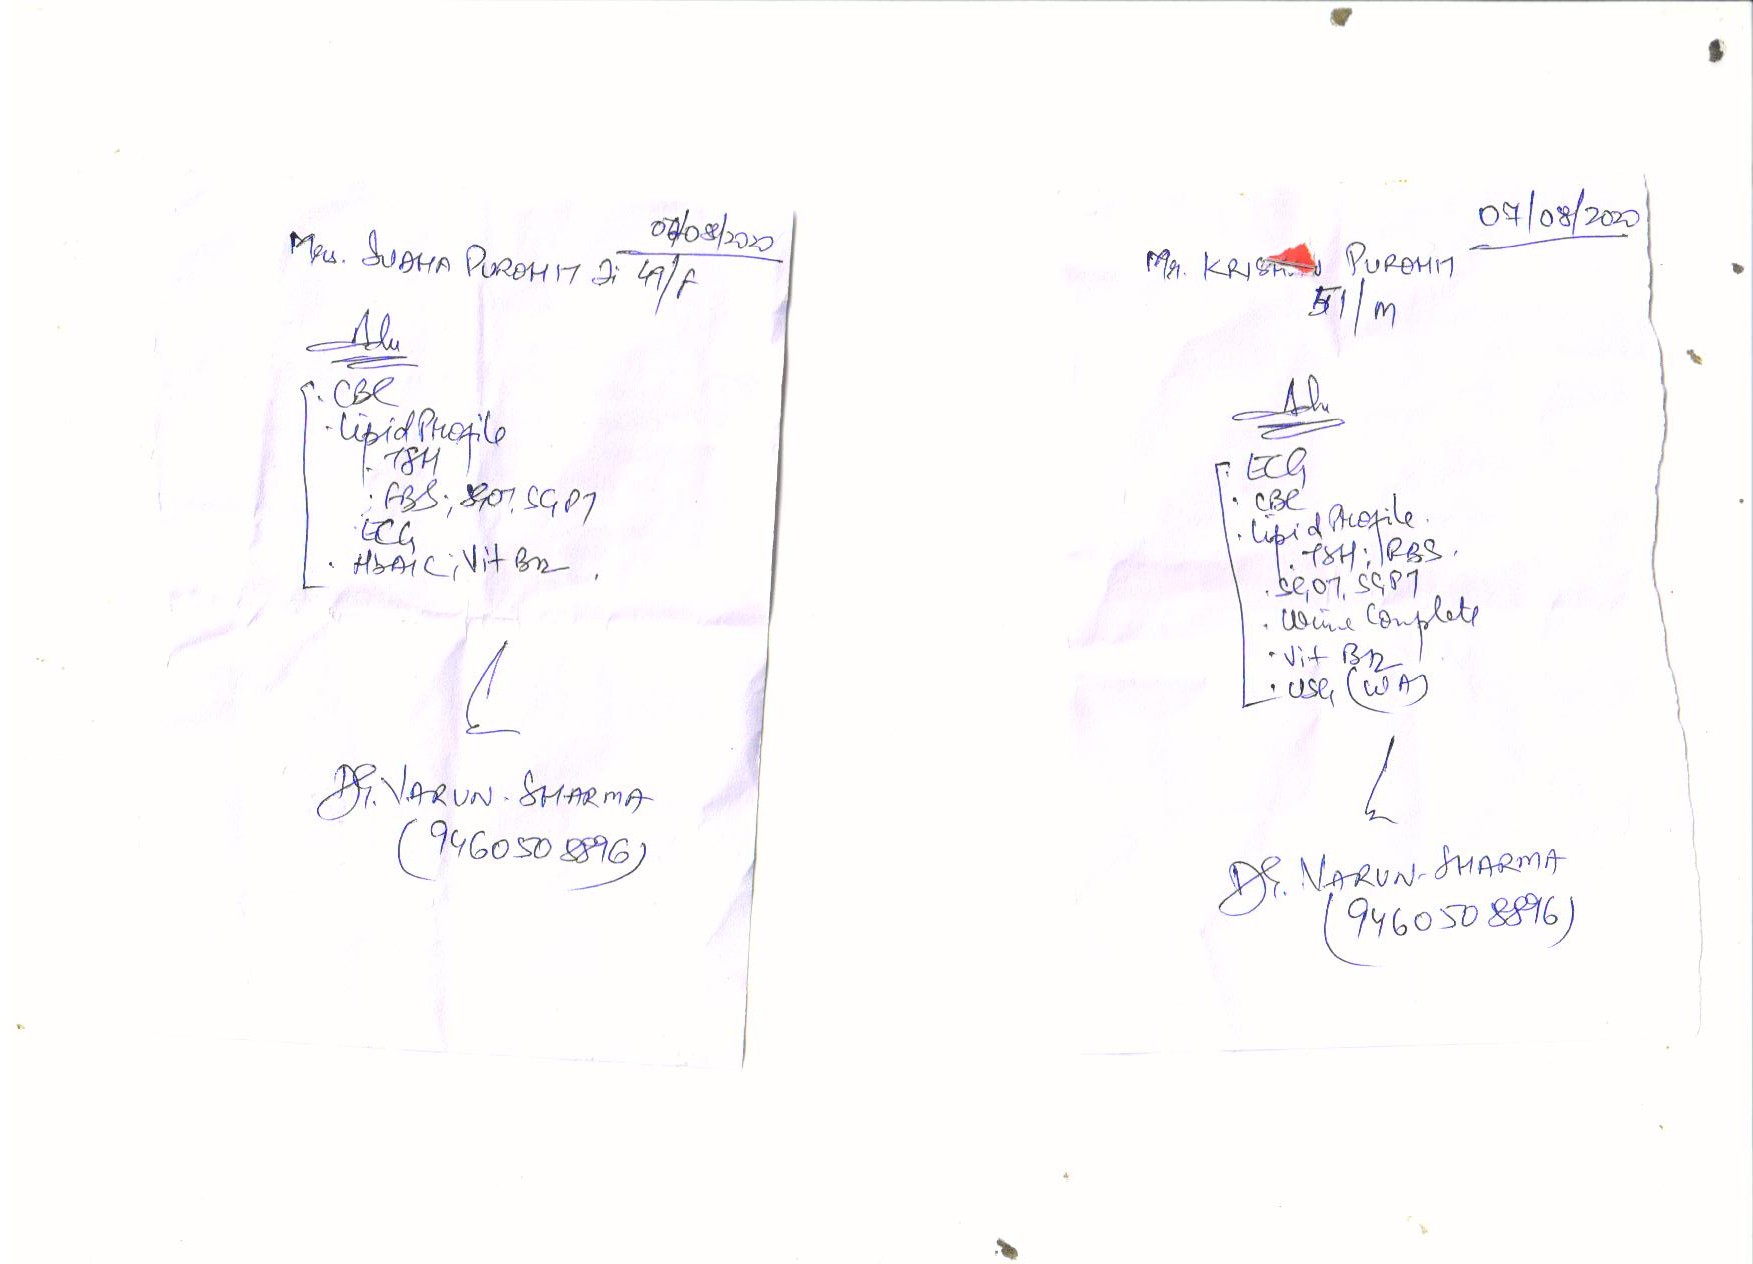 07/08/2020
Mrs. SUDHA PUROHIT Ji 49/F
Adv
. CBC
. Lipid Profile
. TSH
. FBS; SGOT, SGPT
ECG
. HbA1C; Vit B12
Dr. VARUN. SHARMA
(9460508896)
07/08/2020
Mr. PUROHIT
51/M
Adv
. ECG
. CBC
. Lipid Profile.
. TSH; RBS.
. SGOT, SGPT
. Urine Complete
. Vit B12
. USG (W A)
Dr. VARUN. SHARMA
(9460508896)